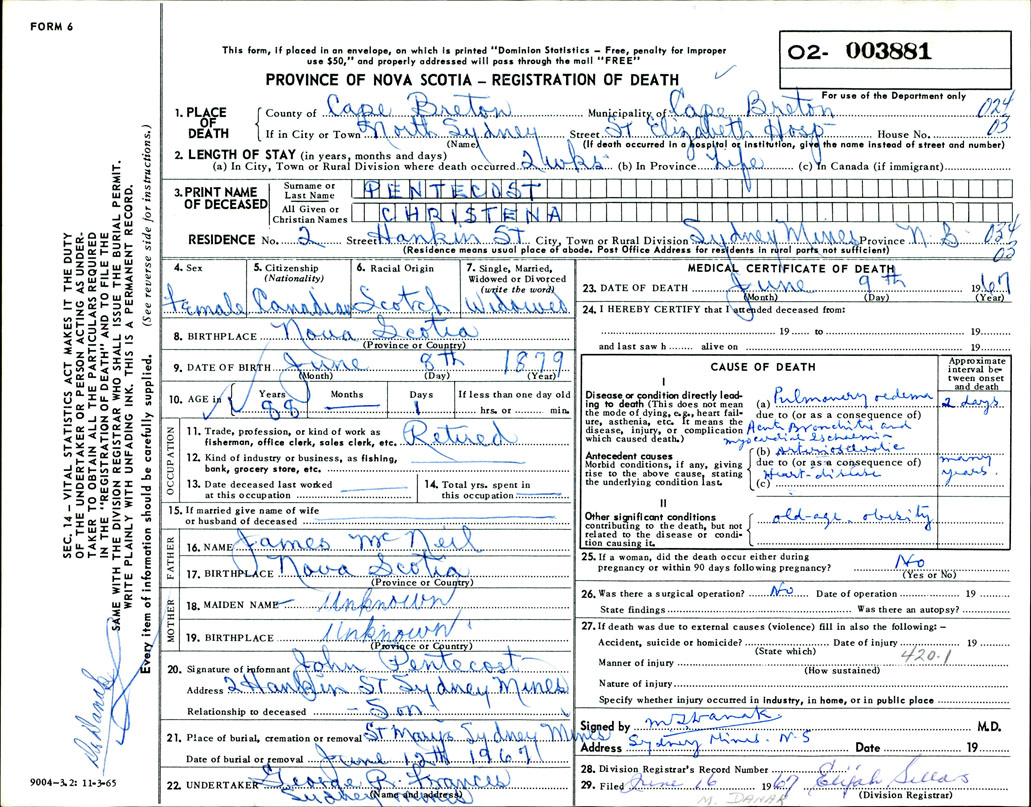 FORM 6
This form, if placed in an envelope, on which is printed "Dominion Statistics – Free, penalty for improper
use $50," and properly addressed will pass through the mail "FREE"
O2- 003881
PROVINCE OF NOVA SCOTIA – REGISTRATION OF DEATH
For use of the Department only
1. PLACE OF DEATH County of Cape Breton Municipality of Cape Breton 024
If in City or Town North Sydney Street St Elizabeth Hosp House No. 03
(Name) (If death occurred in a hospital or institution, give the name instead of street and number)
2. LENGTH OF STAY (in years, months and days)
(a) In City, Town or Rural Division where death occurred 2 wks (b) In Province Life (c) In Canada (if immigrant)
3. PRINT NAME OF DECEASED
Surname or Last Name PENTECOST
All Given or Christian Names CHRISTENA
RESIDENCE No. 2 Street Hankin St City, Town or Rural Division Sydney Mines Province N. S. 034
(Residence means usual place of abode. Post Office Address for residents in rural parts not sufficient) 03
4. Sex Female
5. Citizenship (Nationality) Canadian
6. Racial Origin Scotch
7. Single, Married, Widowed or Divorced (write the word) Widowed
8. BIRTHPLACE Nova Scotia
(Province or Country)
9. DATE OF BIRTH June 8th 1879
(Month) (Day) (Year)
10. AGE in Years 88 Months — Days 1 If less than one day old hrs. or min.
OCCUPATION
11. Trade, profession, or kind of work as
fisherman, office clerk, sales clerk, etc. Retired
12. Kind of industry or business, as fishing,
bank, grocery store, etc.
13. Date deceased last worked
at this occupation
14. Total yrs. spent in
this occupation
15. If married give name of wife
or husband of deceased
FATHER
16. NAME James McNeil
17. BIRTHPLACE Nova Scotia
(Province or Country)
MOTHER
18. MAIDEN NAME Unknown
19. BIRTHPLACE Unknown
(Province or Country)
20. Signature of informant John Pentecost
Address 2 Hankin St Sydney Mines
Relationship to deceased - Son
21. Place of burial, cremation or removal St Marys Sydney Mines
Date of burial or removal June 12th 1967
22. UNDERTAKER George R. Francis
(Name and address) Sydney Mines
MEDICAL CERTIFICATE OF DEATH
23. DATE OF DEATH June 9th 1967
(Month) (Day) (Year)
24. I HEREBY CERTIFY that I attended deceased from:
19 to 19
and last saw h alive on 19
CAUSE OF DEATH
Approximate interval between onset and death
I
Disease or condition directly leading to death (This does not mean
the mode of dying, e.g., heart failure, asthenia, etc. It means the
disease, injury, or complication
which caused death.)
(a) Pulmonary oedema 2 days
due to (or as a consequence of)
Acute Bronchitis and
myocardial
Antecedent causes
Morbid conditions, if any, giving
rise to the above cause, stating
the underlying condition last.
(b) Arteriosclerotic many years.
due to (or as a consequence of)
Heart-disease
(c)
II
Other significant conditions
contributing to the death, but not
related to the disease or condition causing it.
old-age, obesity
25. If a woman, did the death occur either during
pregnancy or within 90 days following pregnancy? No
(Yes or No)
26. Was there a surgical operation? No Date of operation 19
State findings Was there an autopsy?
27. If death was due to external causes (violence) fill in also the following: –
Accident, suicide or homicide? Date of injury 19
(State which) 420.1
Manner of injury
(How sustained)
Nature of injury
Specify whether injury occurred in industry, in home, or in public place
Signed by M.D.
Address Sydney Mines. N.S Date 19
28. Division Registrar's Record Number
29. Filed June 16 1967 Elijah Sellars
M. DANAK (Division Registrar)
SEC. 14 – VITAL STATISTICS ACT MAKES IT THE DUTY
OF THE UNDERTAKER OR PERSON ACTING AS UNDER-
TAKER TO OBTAIN ALL THE PARTICULARS REQUIRED
IN THE "REGISTRATION OF DEATH" AND TO FILE THE
SAME WITH THE DIVISION REGISTRAR WHO SHALL ISSUE THE BURIAL PERMIT.
WRITE PLAINLY WITH UNFADING INK. THIS IS A PERMANENT RECORD.
Every item of information should be carefully supplied. (See reverse side for instructions.)
Dr Danak
9004–3.2: 11-3-65